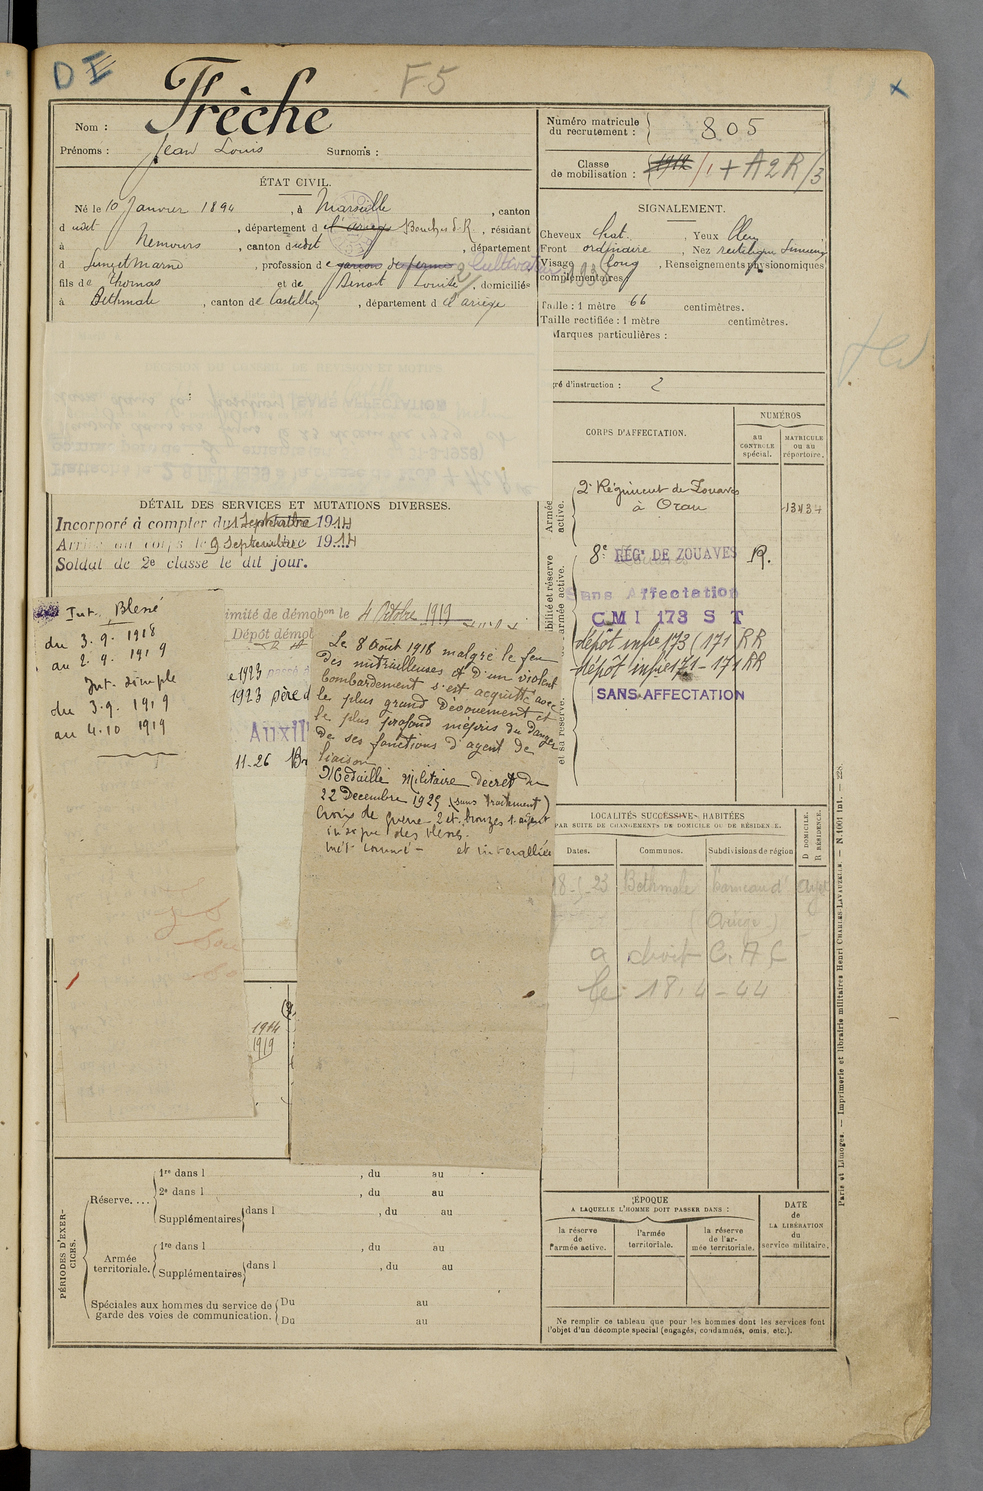 DE
F5
Nom : Frèche
Prénoms : Jean Louis Surnoms :
Numéro matricule du recrutement : 805
Classe de mobilisation : 1912 /1 + A2R/3
ÉTAT CIVIL.
Né le 10 Janvier 1894, à Marseille, canton
dudit, département de l'ariège Bouches d. R., résidant
à Nemours, canton dudit, département
d Seine et Marne, profession de garçon de ferme Cultivateur
fils de Thomas et de Benoit Louise, domiciliés
à Bethmale, canton de Castillon, département de l'ariège
SIGNALEMENT.
Cheveux chat. , Yeux bleu
Front ordinaire, Nez rectiligne
Visage long, Renseignements physionomiques
complémentaires
1938
Taille : 1 mètre 66 centimètres.
Taille rectifiée : 1 mètre centimètres.
Marques particulières :
gré d'instruction : 2
CORPS D'AFFECTATION.
NUMÉROS
au CONTROLE spécial.
MATRICULE ou au répertoire.
Armée active.
2e Régiment de Zouaves
à Oran
13434
8e RÉGt DE ZOUAVES R.
Sans Affectation
CMI 173 S T
dépôt infie 173 (171 RR
dépôt infie 171 - 171 RR
SANS AFFECTATION
DÉTAIL DES SERVICES ET MUTATIONS DIVERSES.
Incorporé à compter du 1 Septembre 1914
Arrivé au corps le 9 Septembre 1914
Soldat de 2e classe le dit jour.
imité de démobon le 4 Octobre 1919
Dépôt démob
e 1923
1923 père d
Auxil
11-26
Int. Blessé
du 3.9. 1918
au 2.9. 1919
Int. simple
du 3.9. 1919
au 4.10 1919
Le 8 Août 1918 malgré le feu
des mitrailleuses et d'un violent
bombardement s'est acquitté avec
le plus grand dévouement et
le plus profond mépris du danger
de ses fonctions d'agent de
liaison
Médaille Militaire décret du
22 Décembre 1925 (sans traitement)
Croix de guerre 2 et. bronzes 1. argent
insigne des blessés.
et interalliée
1914
1919
LOCALITÉS SUCCESSIVES HABITÉES
PAR SUITE DE CHANGEMENTS DE DOMICILE OU DE RÉSIDENCE.
D DOMICILE. R RÉSIDENCE.
Dates. Communes. Subdivisions de région
18-5-23 Bethmale
(Ariège)
a droit C. A C
le 18.4-44
PÉRIODES D'EXERCICES.
Réserve....
1re dans l , du au
2e dans l , du au
Supplémentaires dans l , du au
Armée territoriale.
1re dans l , du au
Supplémentaires dans l , du au
Spéciales aux hommes du service de garde des voies de communication.
Du au
Du au
ÉPOQUE
A LAQUELLE L'HOMME DOIT PASSER DANS :
la réserve de l'armée active.
l'armée territoriale.
la réserve de l'armée territoriale.
DATE de LA LIBÉRATION du service militaire.
Ne remplir ce tableau que pour les hommes dont les services font
l'objet d'un décompte spécial (engagés, condamnés, omis, etc.).
Paris et Limoges. — Imprimerie et librairie militaires Henri CHARLES-LAVAUZELLE. — N. 1001 int. — 228.